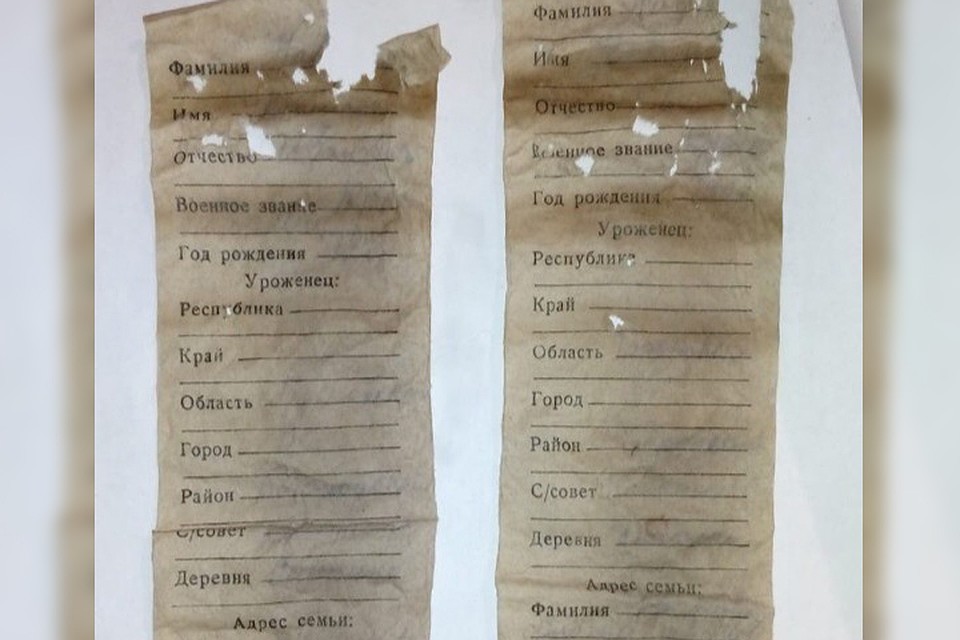 Фамилия
Имя
Отчество
Военное звание
Год рождения
Уроженец:
Республика
Край
Область
Город
Район
С/совет
Деревня
Адрес семьи:
Фамилия
Имя
Отчество
Военное звание
Год рождения
Уроженец:
Республика
Край
Область
Город
Район
С/совет
Деревня
Адрес семьи:
Фамилия